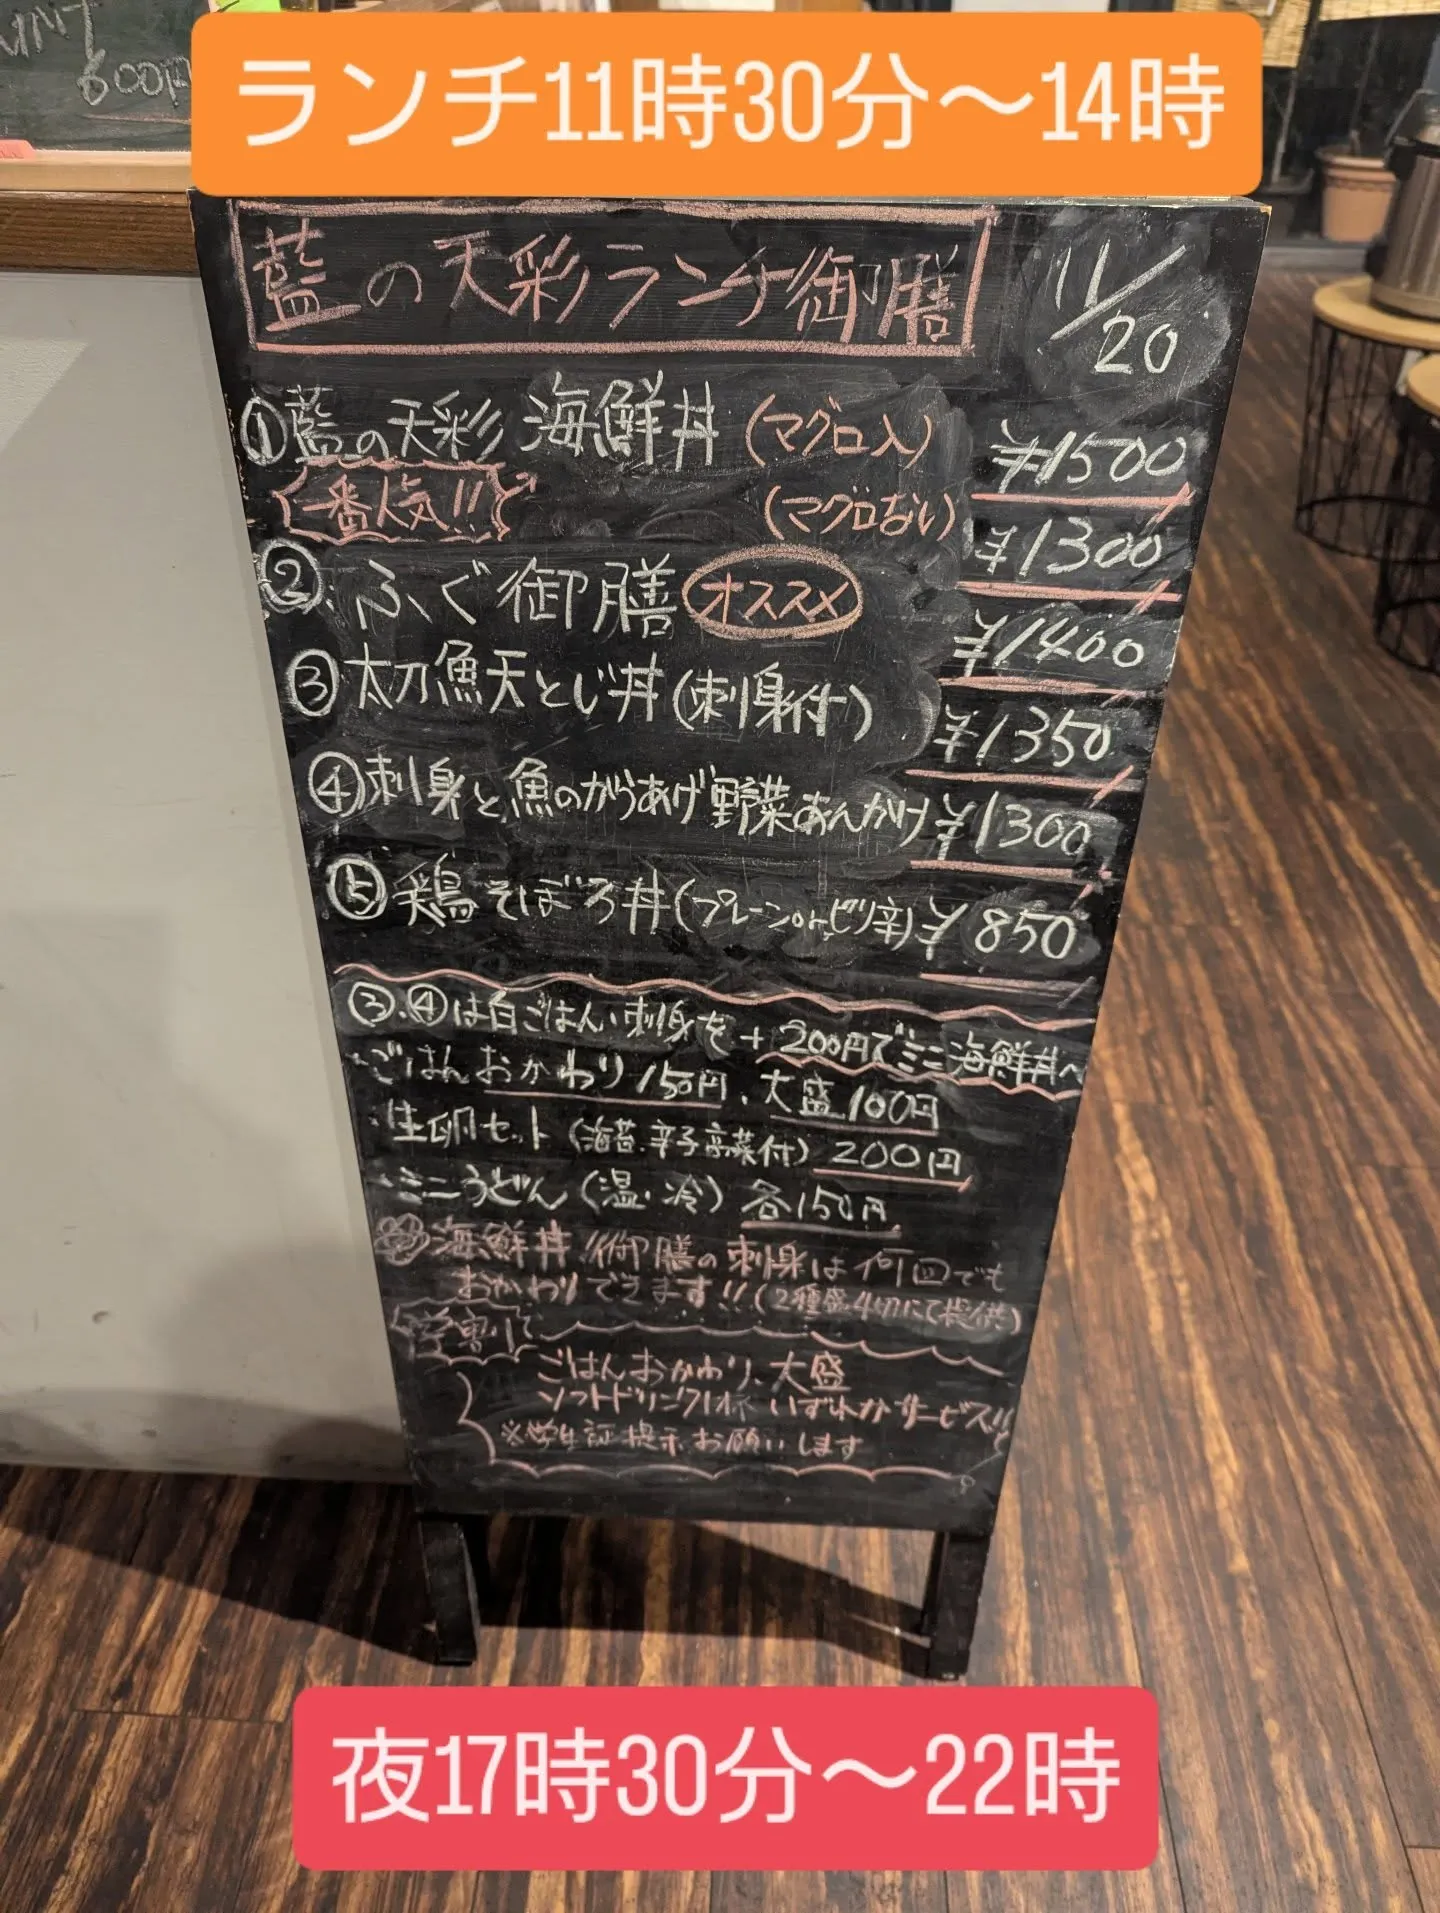 600円
ランチ11時30分〜14時
藍の天彩ランチ御膳 11/20
①藍の天彩 海鮮丼 (マグロ入) ¥1500
一番人気!! (マグロない) ¥1300
② ふぐ御膳 オススメ ¥1400
③太刀魚天とじ丼(刺身付) ¥1350
④刺身と魚のからあげ野菜あんかけ ¥1300
⑤鶏そぼろ丼(プレーンorピリ辛) ¥850
③、④は白ごはん・刺身を+200円でミニ海鮮丼へ
・ごはんおかわり150円、大盛100円
・生卵セット(海苔、辛子高菜付)200円
・ミニうどん(温・冷)各150円
海鮮丼、御膳の刺身は何回でも
おかわりできます!!(2種盛4切にて提供)
学割
ごはんおかわり、大盛
ソフトドリンク1杯 いずれかサービス!!
※学生証提示お願いします
夜17時30分〜22時